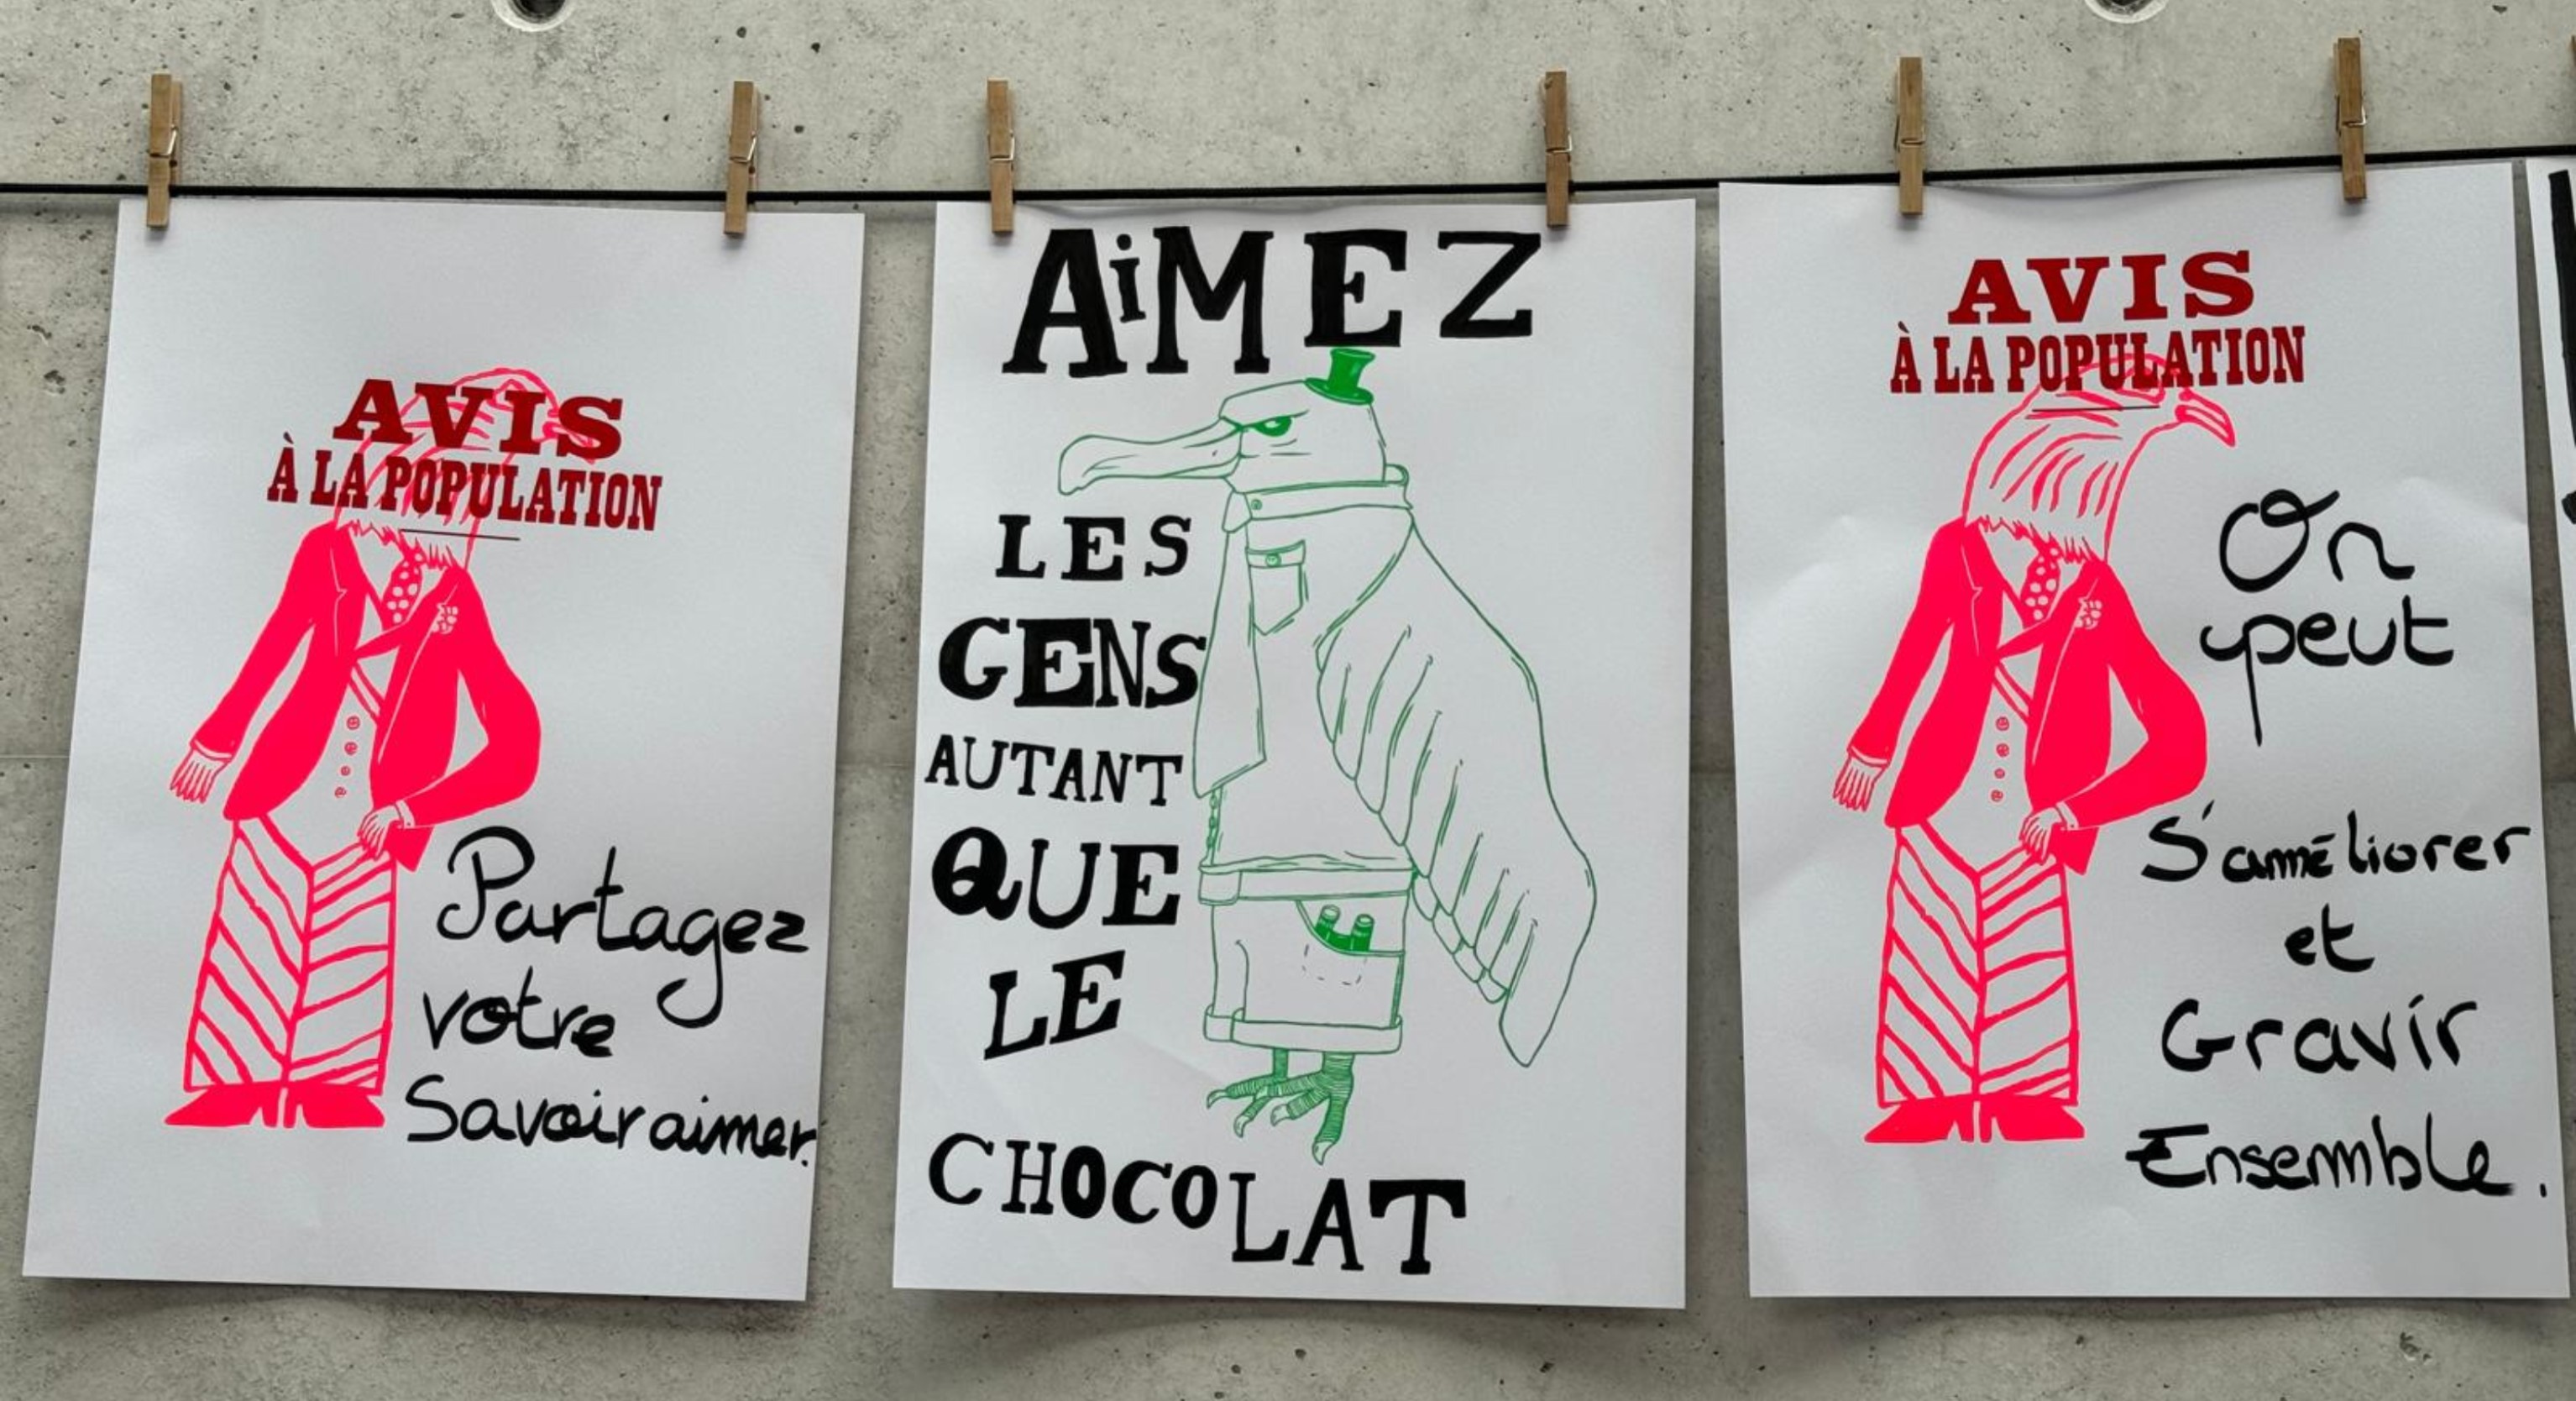 AVIS
À LA POPULATION
Partagez
votre
Savoir aimer.
AiMEZ
LES
GENS
AUTANT
QUE
LE
CHOCOLAT
AVIS
À LA POPULATION
On
peut
S'améliorer
et
Gravir
Ensemble.